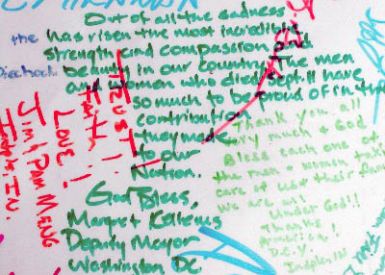 Out of all the sadness
has risen the most incredible
strength and compassion and
beauty in our country. The men
and women who died Sept. 11 have
so much to be proud of in the
contribution
they made
to our
Nation.
God Bless,
Margret Kellems
Deputy Mayor
Washington DC
the
TRUST!
Faith!!
LOVE!!
Jim & Pam
IN.
Thank you all
very much & God
Bless each one of
the men & women taking
care of us & their
we are all
Under God!!
Thanks